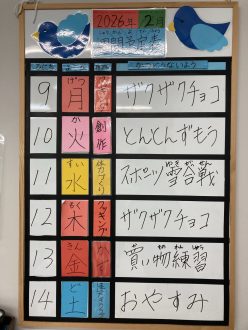 2026年 2月
9 げつ 月 ザクザクチョコ
10 か 火 創作 とんとんずもう
11 すい 水 体力づくり スポーツ雪合戦
12 もく 木 クッキング ザクザクチョコ
13 きん 金 買い物練習
14 ど 土 おやすみ